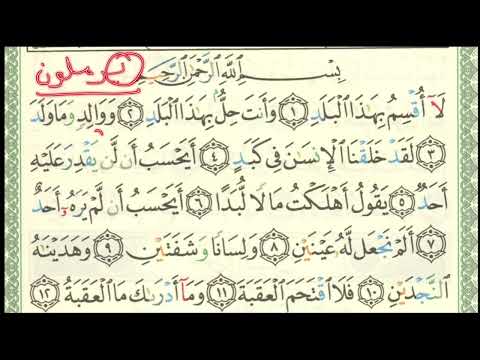 يرملون
بِسْمِ ٱللَّهِ ٱلرَّحْمَٰنِ ٱلرَّحِيمِ
لَآ أُقْسِمُ بِهَٰذَا ٱلْبَلَدِ ١ وَأَنتَ حِلٌّۢ بِهَٰذَا ٱلْبَلَدِ ٢ وَوَالِدٍ وَمَا وَلَدَ
٣ لَقَدْ خَلَقْنَا ٱلْإِنسَٰنَ فِى كَبَدٍ ٤ أَيَحْسَبُ أَن لَّن يَقْدِرَ عَلَيْهِ
أَحَدٌ ٥ يَقُولُ أَهْلَكْتُ مَالًا لُّبَدًا ٦ أَيَحْسَبُ أَن لَّمْ يَرَهُۥٓ أَحَدٌ
٧ أَلَمْ نَجْعَل لَّهُۥ عَيْنَيْنِ ٨ وَلِسَانًا وَشَفَتَيْنِ ٩ وَهَدَيْنَٰهُ
ٱلنَّجْدَيْنِ ١٠ فَلَا ٱقْتَحَمَ ٱلْعَقَبَةَ ١١ وَمَآ أَدْرَىٰكَ مَا ٱلْعَقَبَةُ ١٢